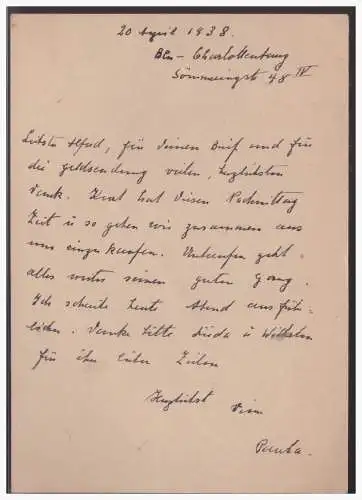 20 April 1938.
Bln - Charlottenburg
Sömmeringstr 48 IV
Liebster Alfred, für Deinen Brief und für
die Geldsendung vielen, herzlichsten
Dank. hat diesen Nachmittag
Zeit u so gehen wir zusammen aus
um einzukaufen. geht
alles weiter seinen guten Gang.
Ich schreibe heute Abend ausführ-
licher. Danke bitte u Wilhelm
für ihre lieben Zeilen
Herzlichst
Deine